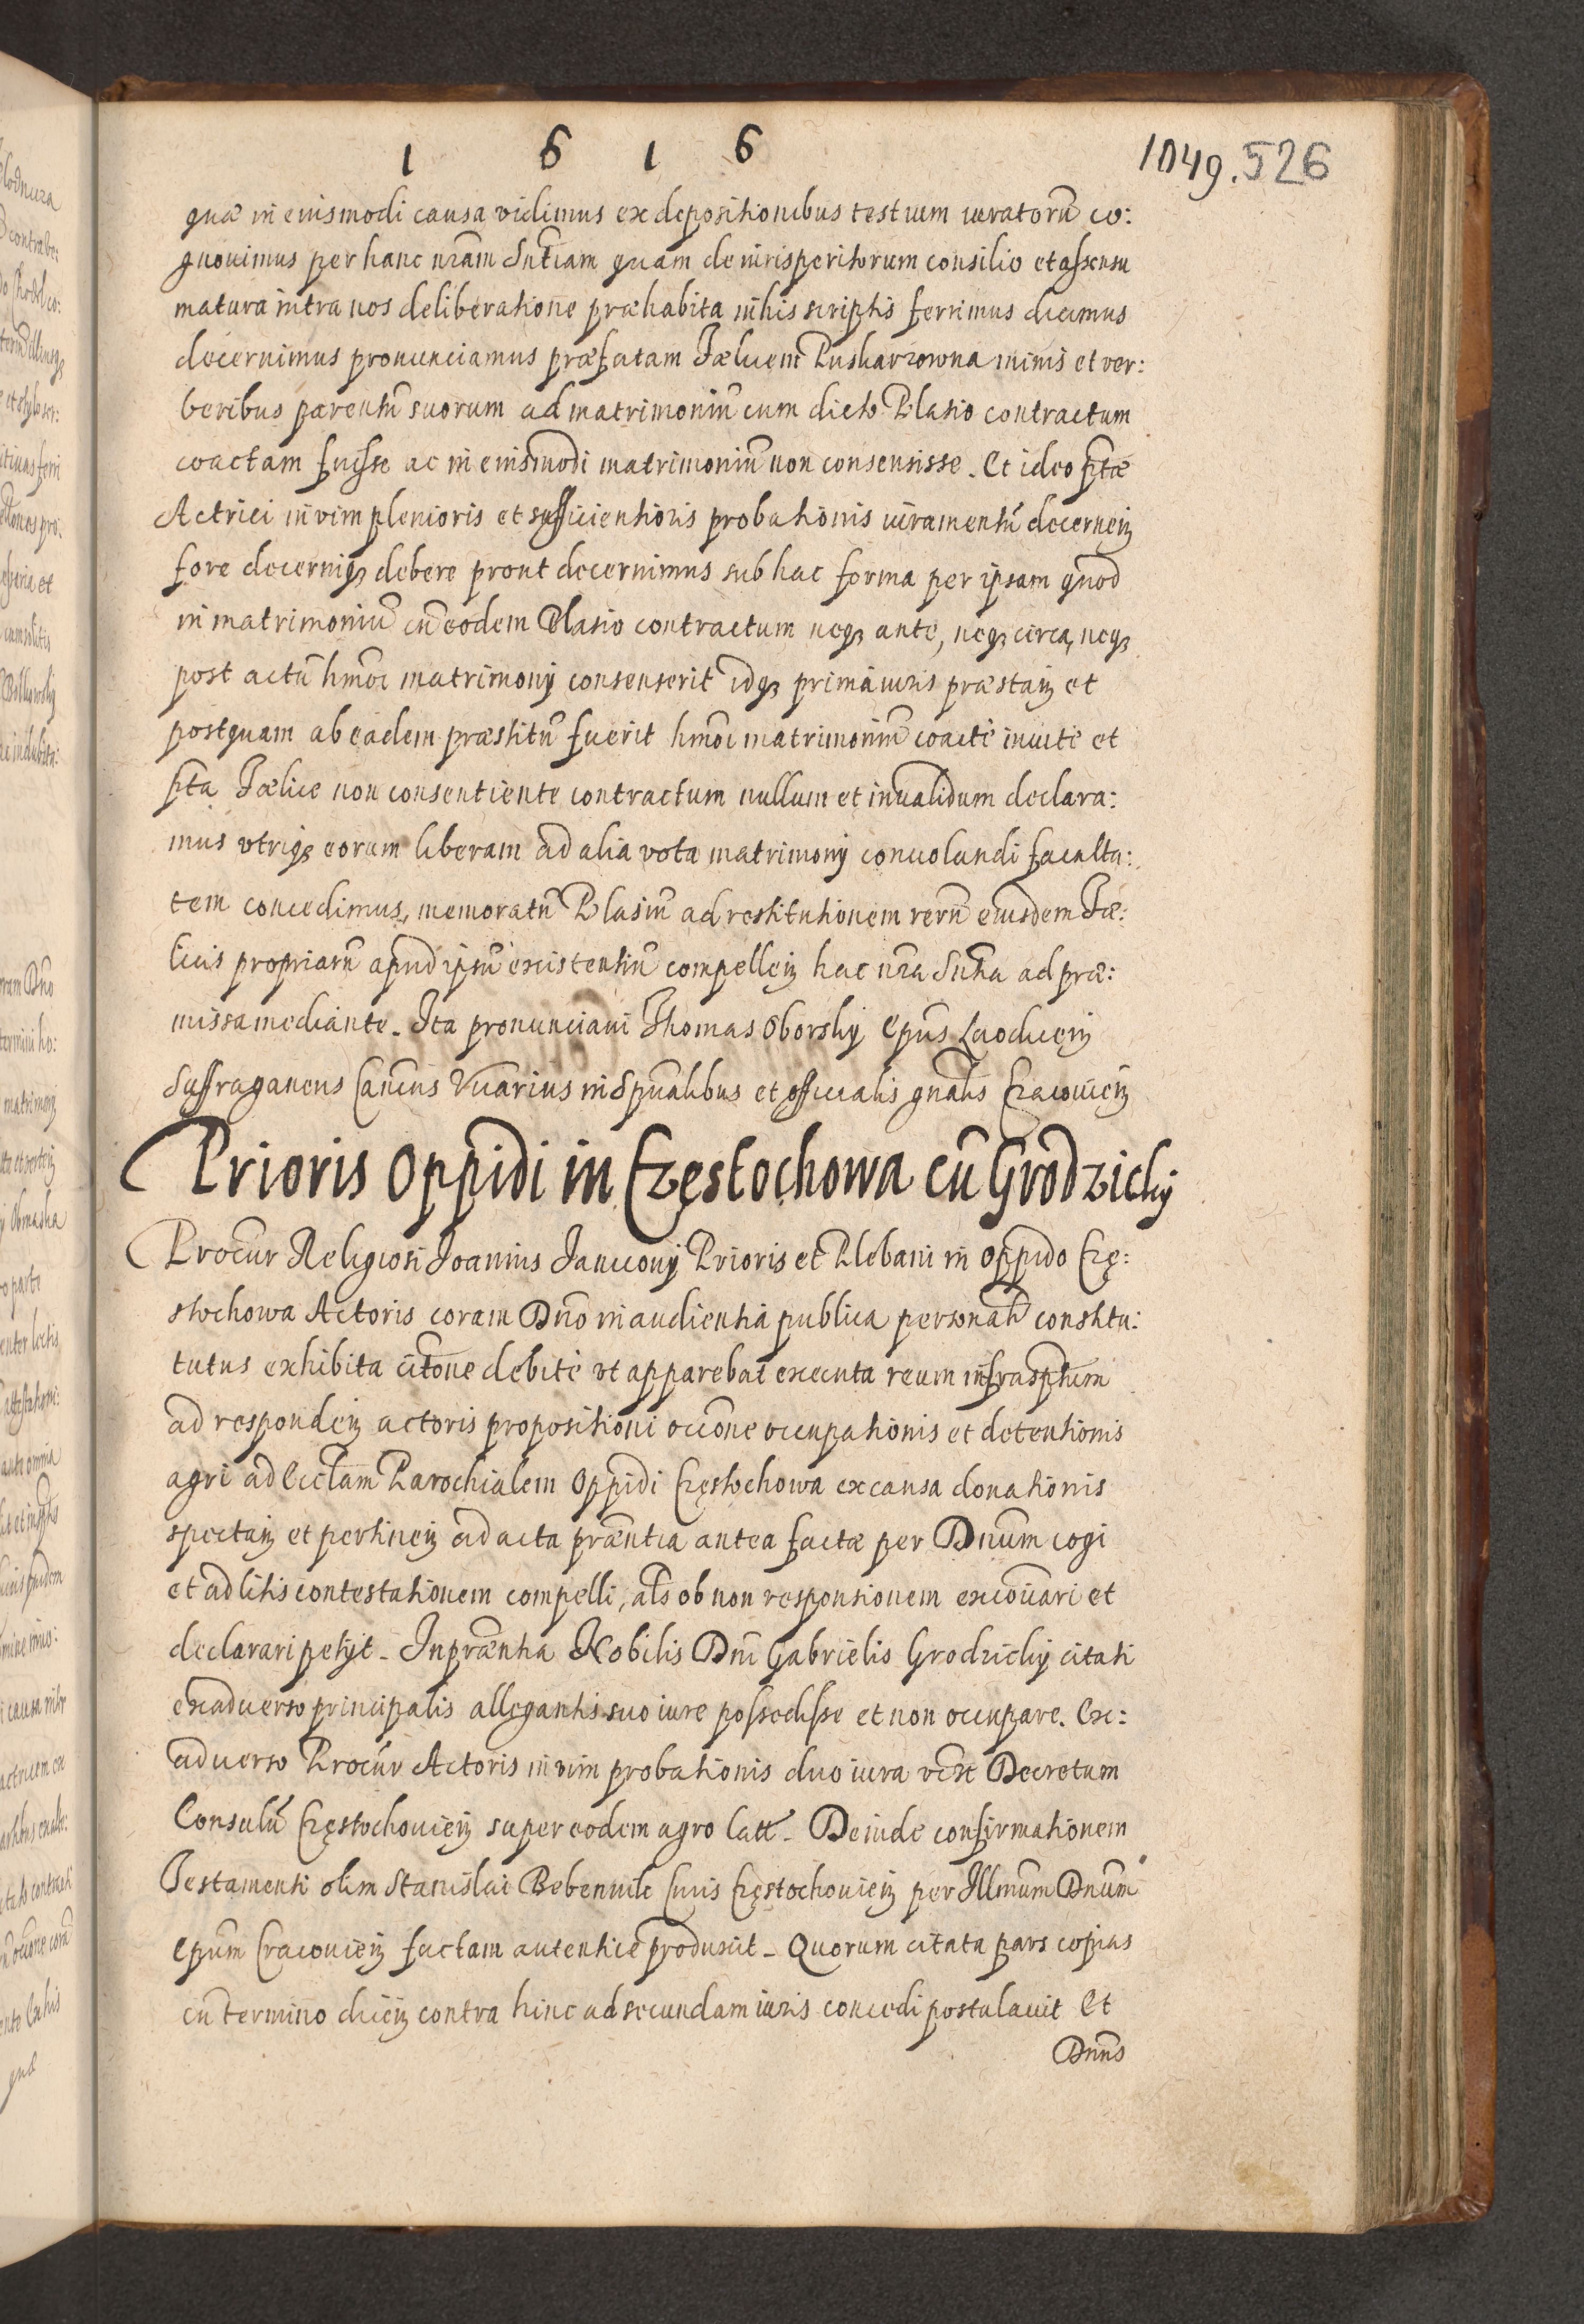 1 6 1 6
1049. 526
quæ in eiusmodi causa vidimus ex depositionibus testium iuratorũ co:
gnouimus per hanc nrãm Sntiãm quam de iurisperitorum consilio et assensu
matura intra nos deliberatione præhabita in his scriptis ferrimus dicimus
decernimus pronunciamus præfatam Fælicem Puskarzowna minis et ver:
beribus parentũ suorum ad matrimoniũ cum dicto Blasio contractum
coactam fuisse ac in eiusmodi matrimoniũ non consensisse. Et ideo ptæ
Actrici in vim plenioris et sufficientioris probationis iuramentũ decernen
fore decerniqȝ debere prout decernimus sub hac forma per ipsam quod
in matrimoniũ cũ eodem Blasio contractum neqȝ ante, neqȝ circa, neqȝ
post actũ hmõi matrimonij consenserit idqȝ prima iuris præstan et
postquam ab eadem præstitũ fuerit hmõi matrimoniũ coacte inuite et
pta Fælice non consentiente contractum nullum et inualidum declara:
mus vtriqȝ eorum liberam ad alia vota matrimonij conuolandi faculta:
tem concedimus, memoratũ Blasiũ ad restitutionem rerũ eiusdem Fæ:
licis propriarũ apud ipsũ existentiũ compellen hac nrã Sntia ad præ:
missa mediante. Ita pronunciaui Thomas Oborsky Epũs Laodicen
Suffraganeus Cancus Vicarius in Spũalibus et officialis gnãlis Cracouien
Prioris Oppidi in Częstochowa cũ Grodzicky
Procur Religiosi Joannis Januconij Prioris et Plebani in Oppido Czę:
stochowa Actoris coram Dño in audientia publica personalr constitu:
tutus exhibita citõne debite vt apparebat executa reum infrasptum
ad responden actoris propositioni occõne occupationis et detentionis
agri ad Ecclam Parochialem Oppidi Częstochowa ex causa donationis
spectan et pertinen ad acta præntia antea factæ per Dnũm cogi
et ad litis contestationem compelli, als ob non responsionem excõicari et
declarari petijt. In præntia Nobilis Dni Gabrielis Grodzicky citati
ex aduerso principalis allegantis suo iure possedisse et non occupare. Ex:
aduerso Procur Actoris in vim probationis duo iura vczt Decretum
Consulũ Częstochouien super eodem agro latt. Deinde confirmationem
Testamenti olim Stanislai Bebennik Ciuis Częstochouien per Illmũm Dnũm
Epũm Cracouien factam autentice produxit. Quorum citata pars copias
cũ termino dicen contra hinc ad secundam iuris concedi postulauit Et
Dnũs